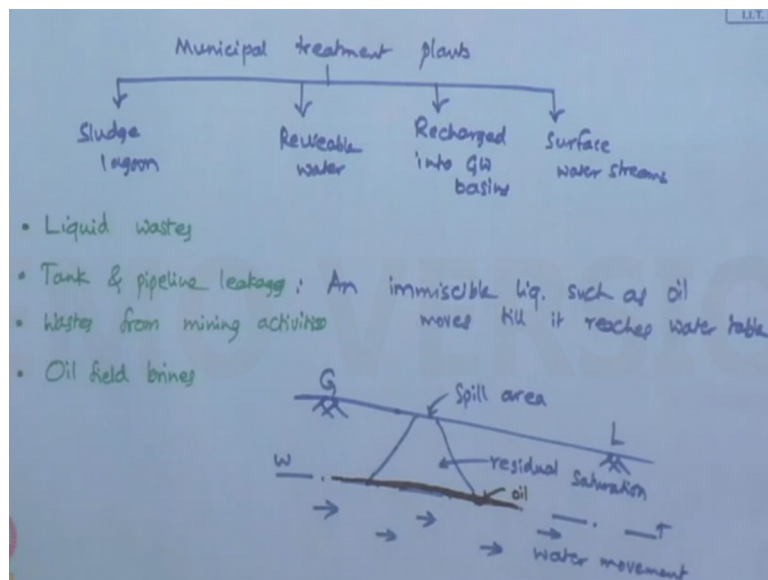 I.I.T.
Municipal treatment plants
Sludge lagoon
Reuseable water
Recharged into GW basins
Surface water streams
• Liquid wastes
• Tank & pipeline leakage: An immiscible liq. such as oil
moves till it reaches water table
• Wastes from mining activities
• Oil field brines
G
Spill area
L
W
residual saturation
oil
T
Water movement
DEMO VERSIO